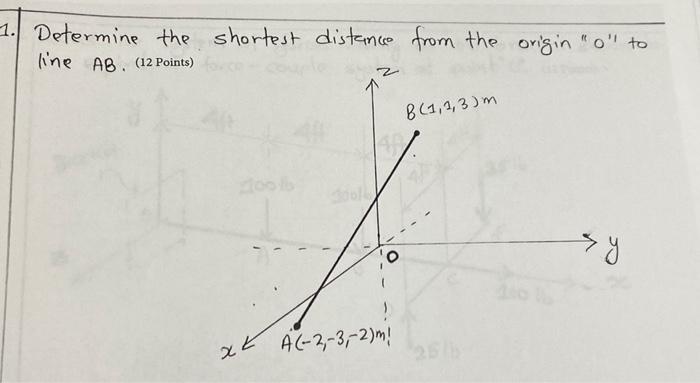 1. Determine the shortest distance from the origin "o" to
line AB. (12 Points)
z
B(1,1,3)m
y
O
x
A(-2,-3,-2)m